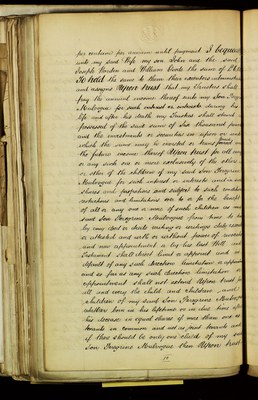 per centum per annum until payment I bequeath
unto my said Wife my son John and the said
Joseph Parkin and William Poole the sum of
To hold the same to them their executors administrators
and assigns Upon trust that my Trustees shall
pay the annual income thereof unto my Son Peregrine
Montague for such interest or interests during his
life and after his death my Trustees shall stand
possessed of the said sum of Six thousand pounds
and the investments or securities in or upon or into
which the same may be invested or transposed and
the future income thereof Upon trust for all or
any such one or more exclusively of the others
or other of the children of my said Son Peregrine
Montague for such interest or interests and in such
shares and proportions and subject to such conditions
restrictions and limitations over to or for the benefit
of all or any one or more of such children as my
said Son Peregrine Montague from time to time
by any deed or deeds writing or writings duly executed
or attested and with or without power of revocation
and new appointment or by his last Will and
Testament shall direct limit or appoint and in
default of any such direction limitation or appointment
and so far as any such direction limitation or
appointment shall not extend Upon trust for
all and every the child and children of
my said Son Peregrine Montague
whether born in his lifetime or in due time after
his decease in equal shares if more than one as
tenants in common and not as joint tenants and
if there should be only one child of my said
Son Peregrine Montague then Upon trust